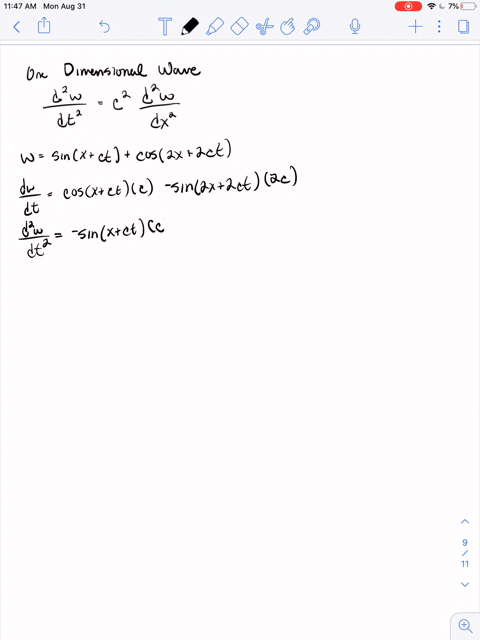 11:47 AM Mon Aug 31
7%
One Dimensional Wave
d²w/dt² = c² d²w/dx²
w = sin(x+ct) + cos(2x+2ct)
dw/dt = cos(x+ct)(c) -sin(2x+2ct)(2c)
d²w/dt² = -sin(x+ct)(c
9
/
11